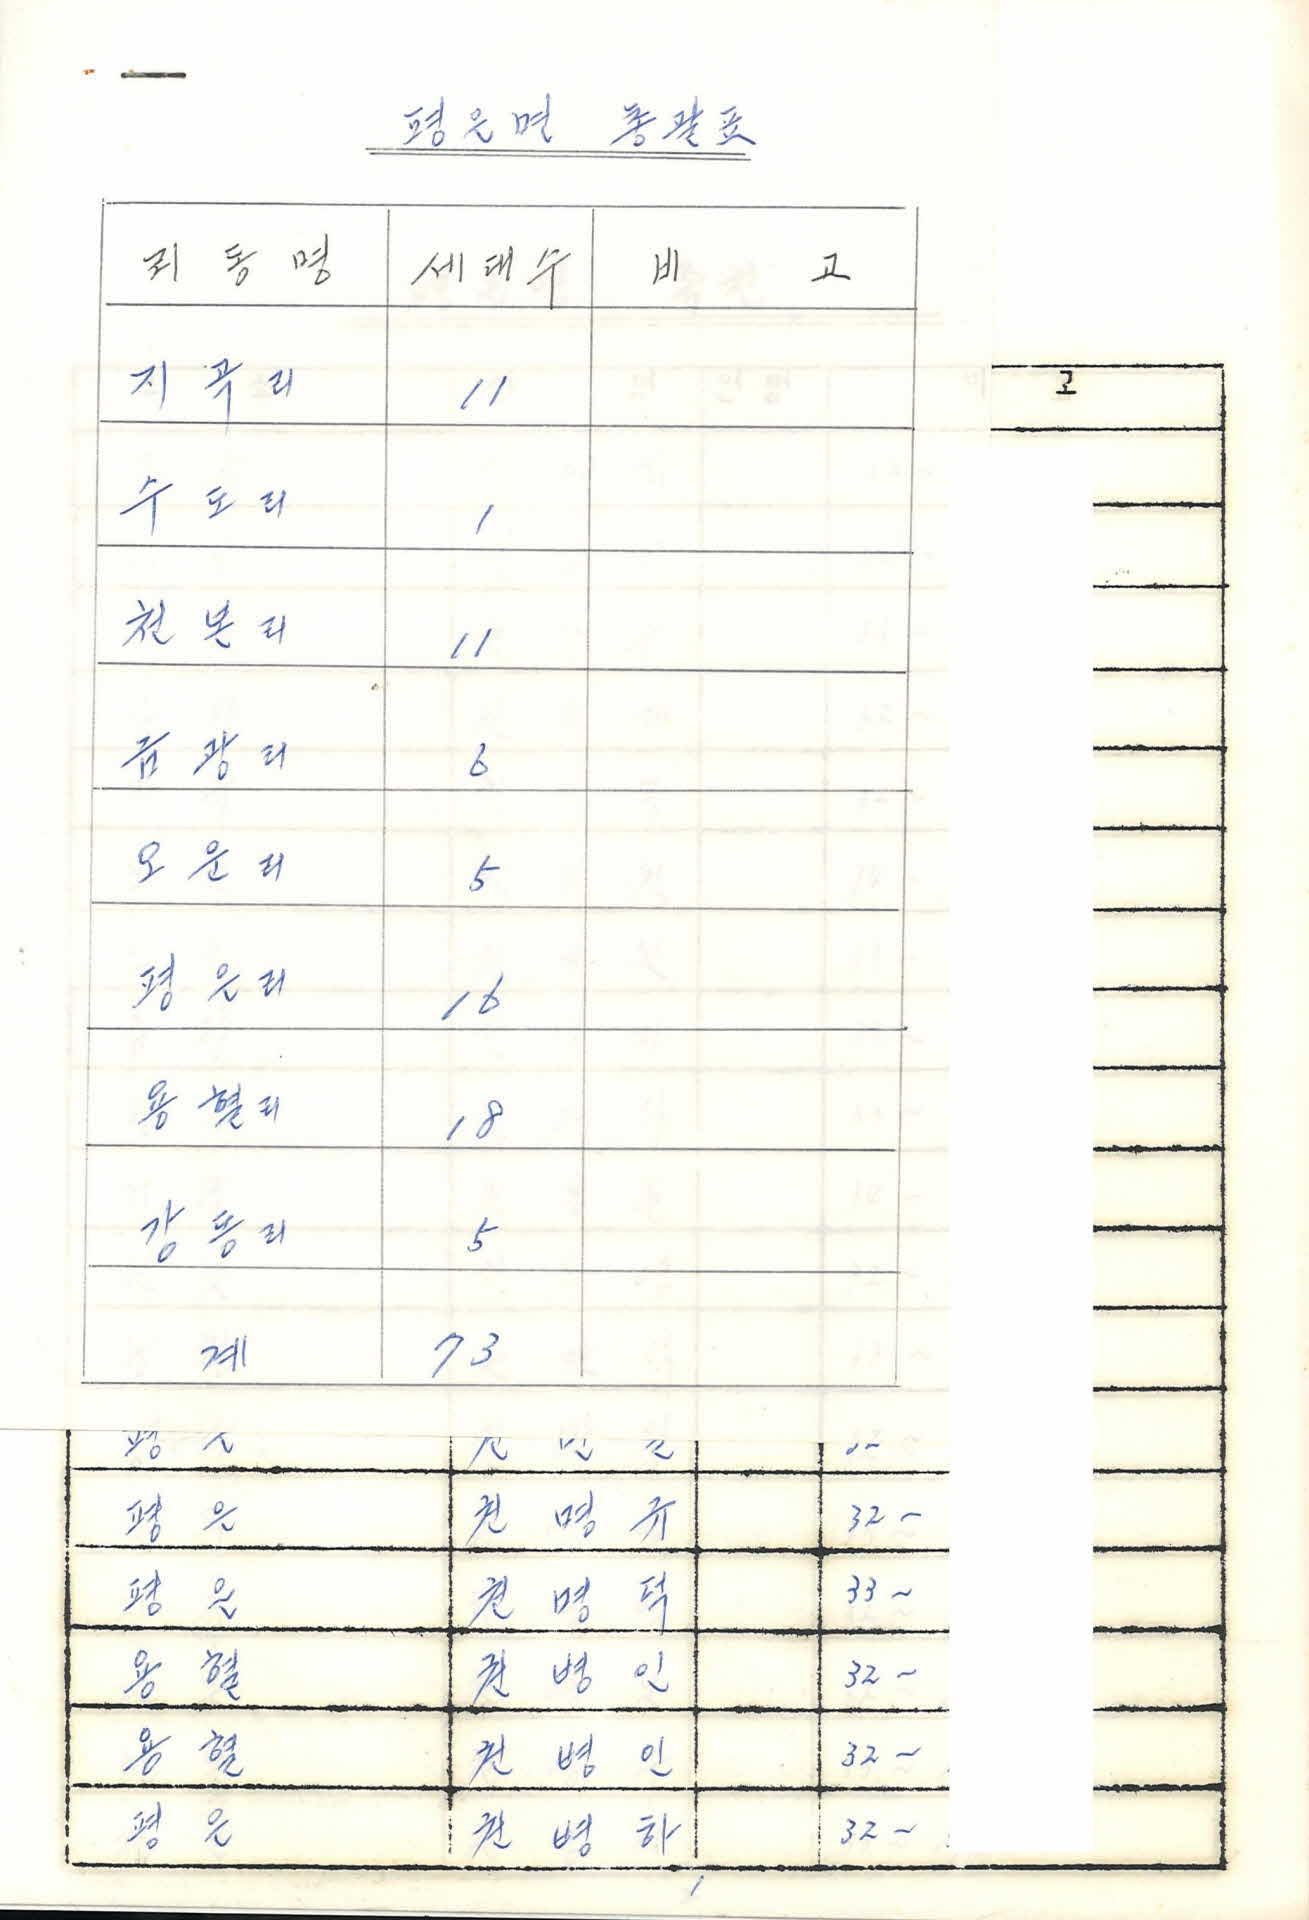 평은면 총괄표
리동명 세대수 비 고
지곡리 11
수도리 1
천본리 11
금광리 6
오운리 5
평은리 16
용혈리 18
강동리 5
계 73
고
평은 권명규 32~
평은 권명덕 33~
용혈 권병인 32~
용혈 권병인 32~
평은 권병하 32~
1